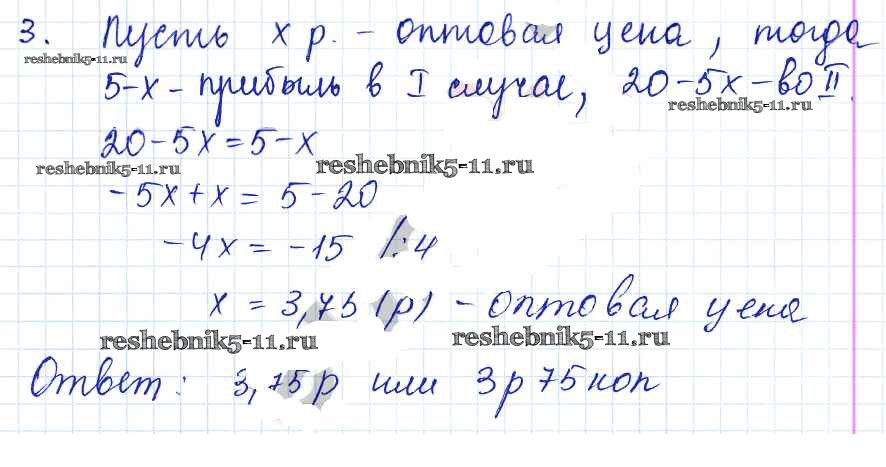 3. Пусть x р. – оптовая цена, тогда
reshebnik5-11.ru
5-x – прибыль в I случае, 20-5x – во II.
reshebnik5-11.ru
20-5x=5-x
reshebnik5-11.ru reshebnik5-11.ru
-5x+x= 5-20
-4x= -15 /:4
x = 3,75 (р) – оптовая цена
reshebnik5-11.ru reshebnik5-11.ru
Ответ: 3,75 р или 3р 75 коп